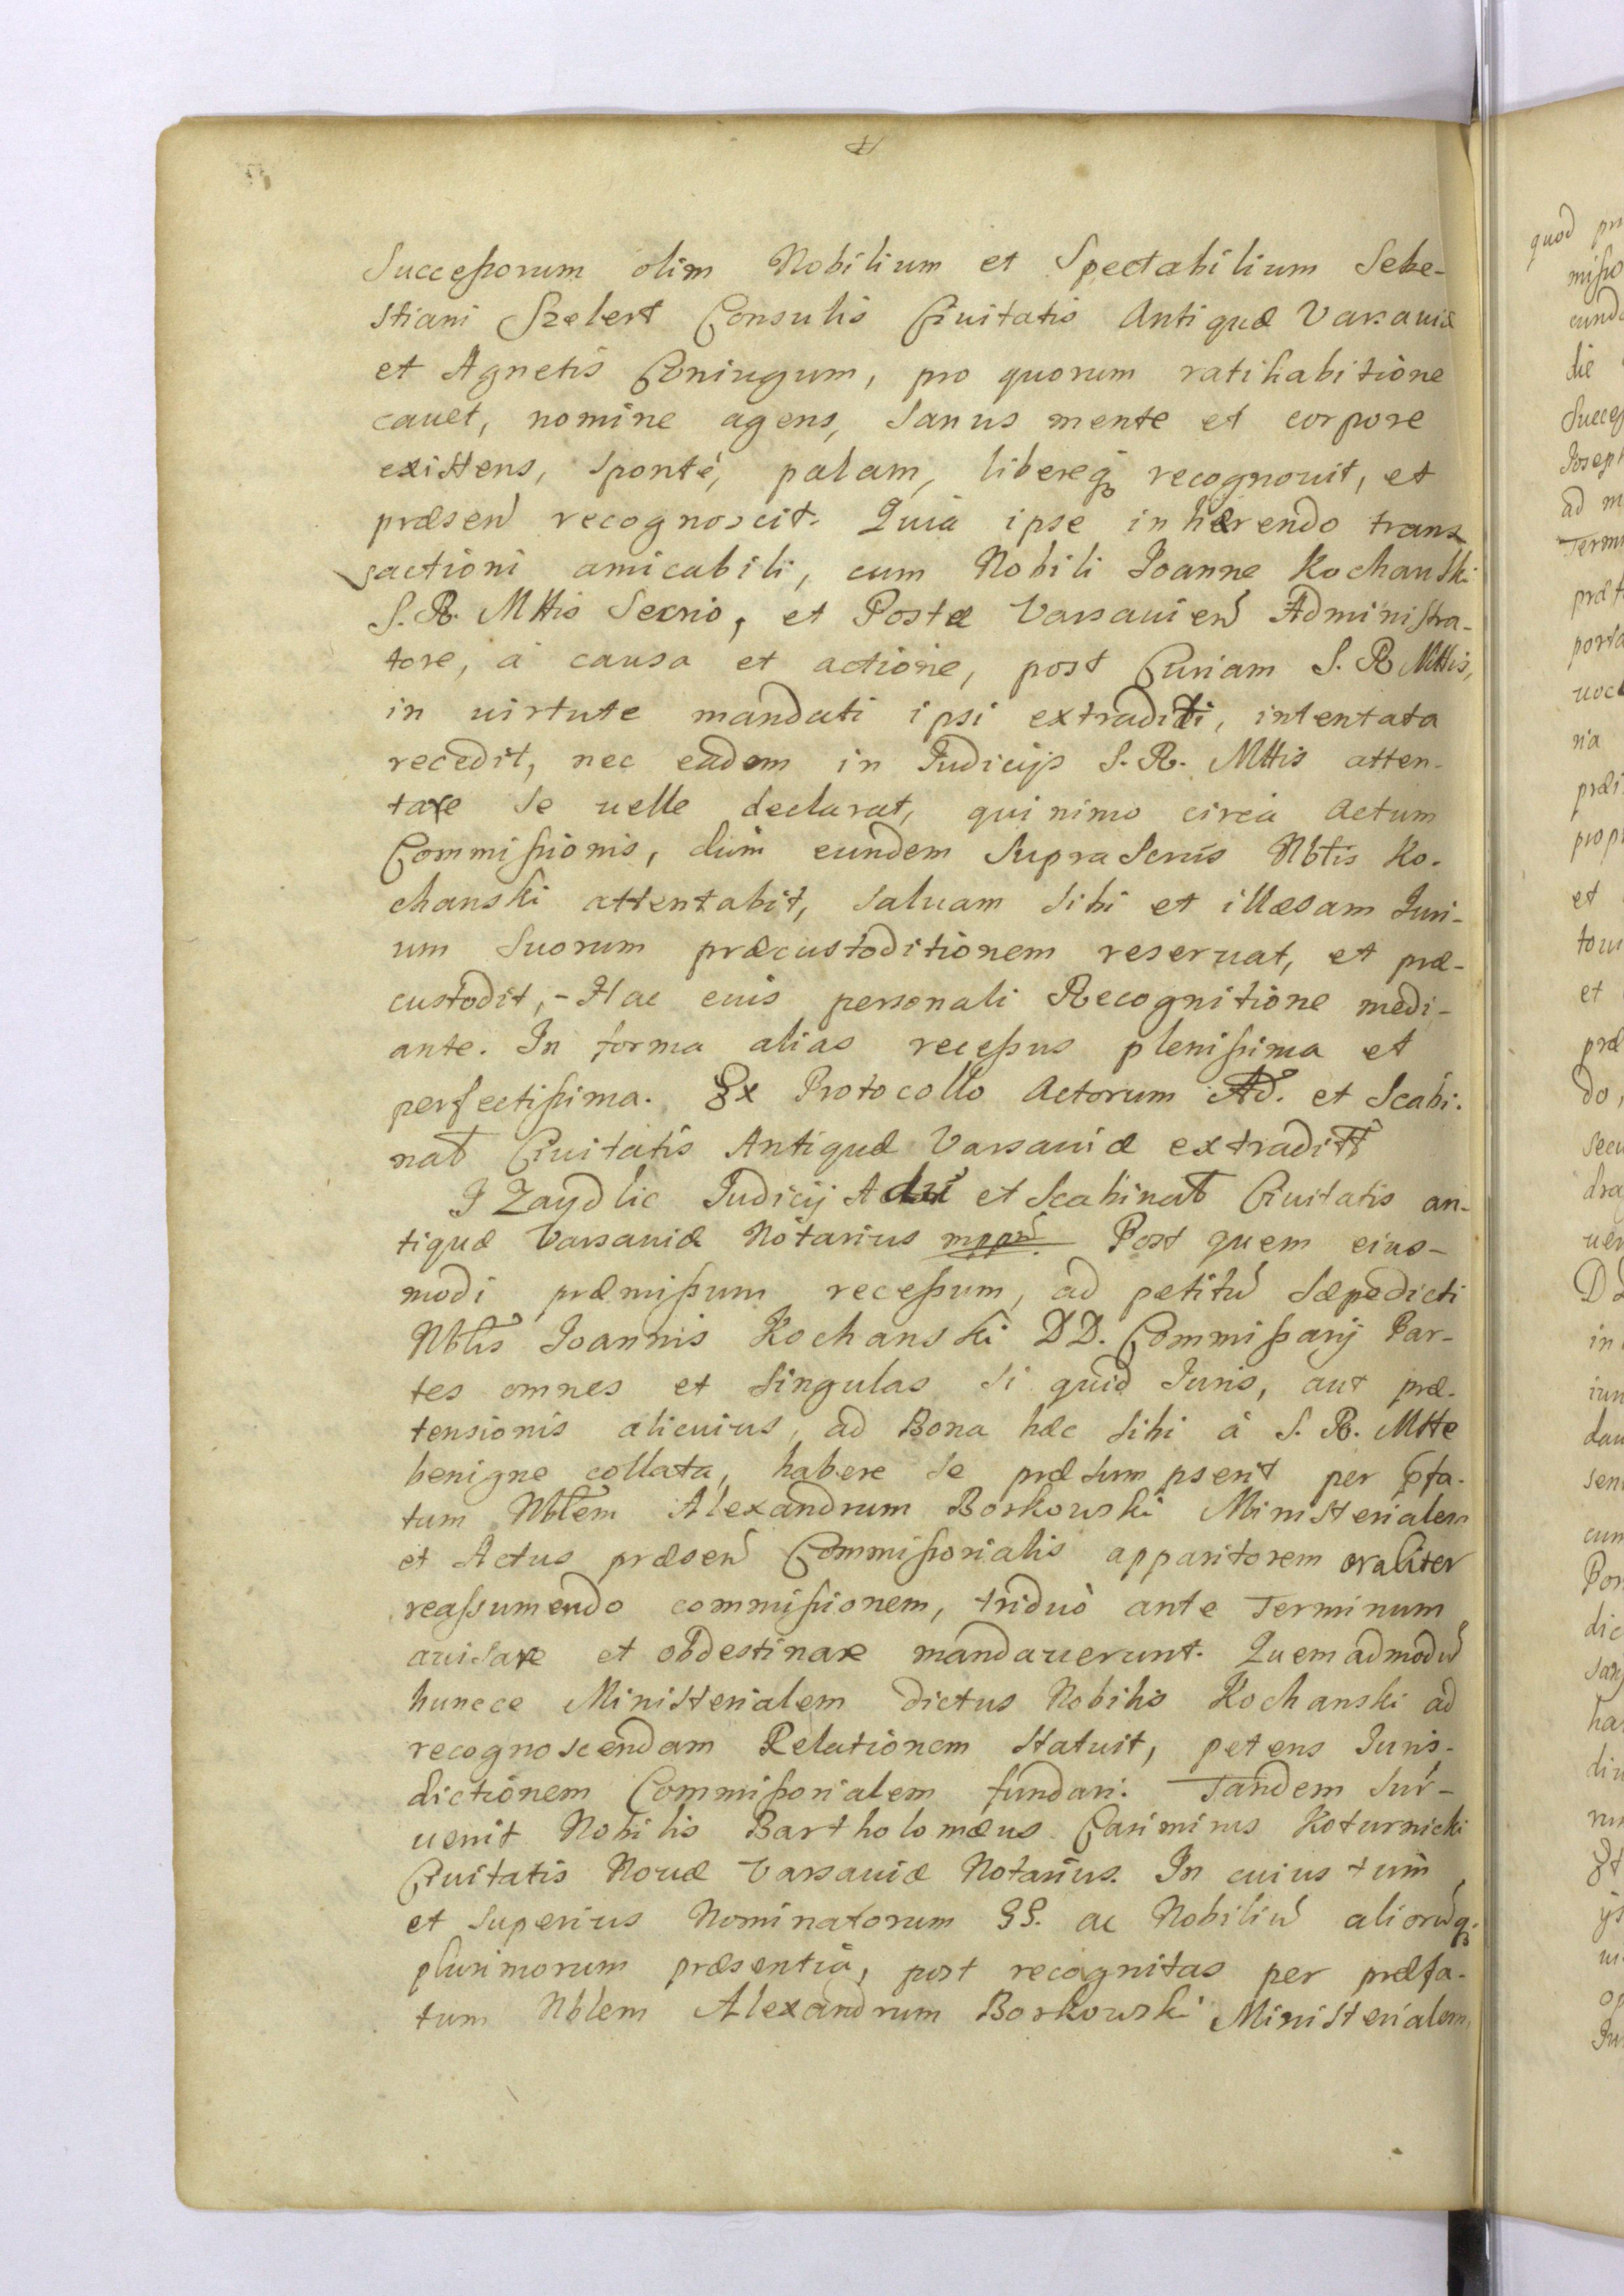 Successorum olim Nobilium et Spectabilium Seba-
stiani Szelert Consulis Ciuitatis Antiquæ Varsauiæ
et Agnetis Coniugum, pro quorum ratihabitione
cauet, nomine agens, sanus mente et corpore
existens, sponte, palam, libereq recognouit, et
præsen recognoscit. Quia ipse inhærendo trans
sactioni amicabili, cum Nobili Joanne Kochanski
S. R. Mttis Secrio, et Postæ Varsauien Administra-
tore, á causa et actione, post Curiam S. R Mttis,
in uirtute mandati ipsi extraditi, intentata
recedit, nec eadem in Judicijs S. R. Mttis atten-
tare se uelle declarat, qui nimo circa Actum
Commissionis, dum eundem supra Scrūs Nbtis Ko-
chanski attentabit, saluam sibi et illæsam Juri-
um suorum præcustoditionem reseruat, et præ-
custodit, - Hac eius personali Recognitione medi-
ante. In forma alias recessus plenissima et
perfectissima. Ex Protocollo Actorum Ad. et Scabi-
nat Ciuitatis Antiquæ Varsauiæ extradit
J Zaydlic Judicij Adu et Scabinat Ciuitatis an-
tiquæ Varsauiæ Notarius mppr Post quem eius-
modi præmissum recessum, ad petitū sæpedicti
Nbtis Joannis Kochanski DD. Commissarij Par-
tes omnes et singulas si quid Juris, aut præ-
tensionis alicuius, ad Bona hæc sibi á S. R. Mtte
benigne collata, habere se præsumpserit per pfa-
tum Nbtem Alexandrum Borkowski Ministerialem
et Actus præsen Commissorialis apparitorem oraliter
reassumendo commissionem, triduò ante Terminum
auisare et obdestinare mandauerunt. Quemadmodū
huncce Ministerialem dictus Nobilis Kochanski ad
recognoscendam Relationem statuit, petens Juris-
dictionem Commissorialem fundari. Tandem sur-
uenit Nobilis Bartholomæus Casimirus Koturnicki
Ciuitatis Nouæ Varsauiæ Notarius. In cuius tum
et superius Nominatorum GG. ac Nobiliū aliorūq
plurimorum præsentiâ, post recognitas per præfa-
tum Nblem Alexandrum Borkowski Ministerialem,